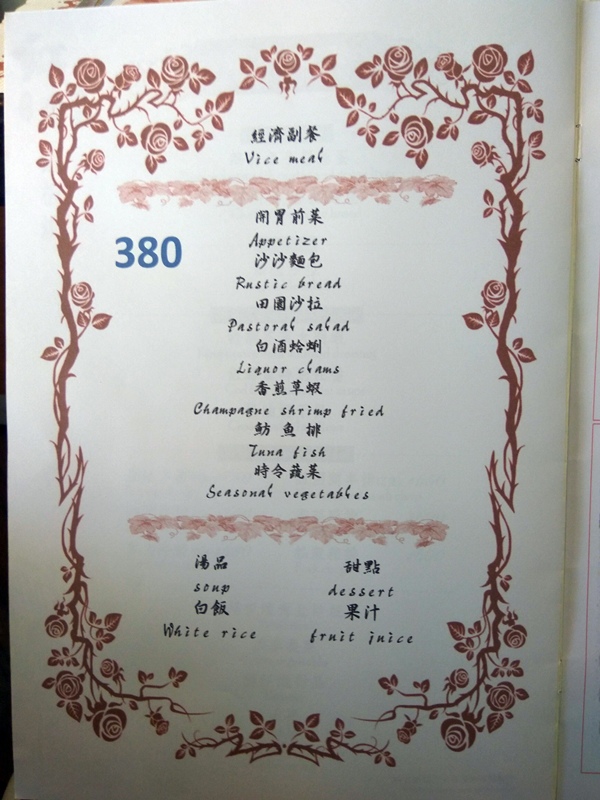 經濟副餐
Vice meal
380
開胃前菜
Appetizer
沙沙麵包
Rustic bread
田園沙拉
Pastoral salad
白酒蛤蜊
Liquor clams
香煎草蝦
Champagne shrimp fried
魴魚排
Tuna fish
時令蔬菜
Seasonal vegetables
湯品
soup
白飯
White rice
甜點
dessert
果汁
fruit juice